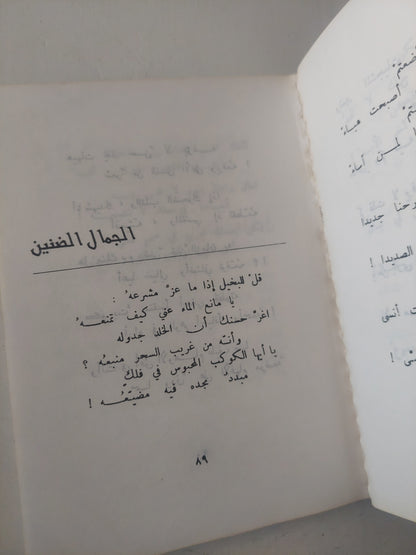 الجمال الضنين
قلْ للبخيل إذا ما عزّ مشرعهُ :
يا مانع الماء عني كيف تمنعهُ
اغرّ حسنك أن الخلد جدوله
وأنّه من غريب السحر منبعُه ؟
يا أيها الكوكب المحبوس في فلك
مبددٌ مجده فيه مضيّعُه !
٨٩
أصبحت هباءَ
لمن أساءَ
جديدا
الصديدا !
أنسى